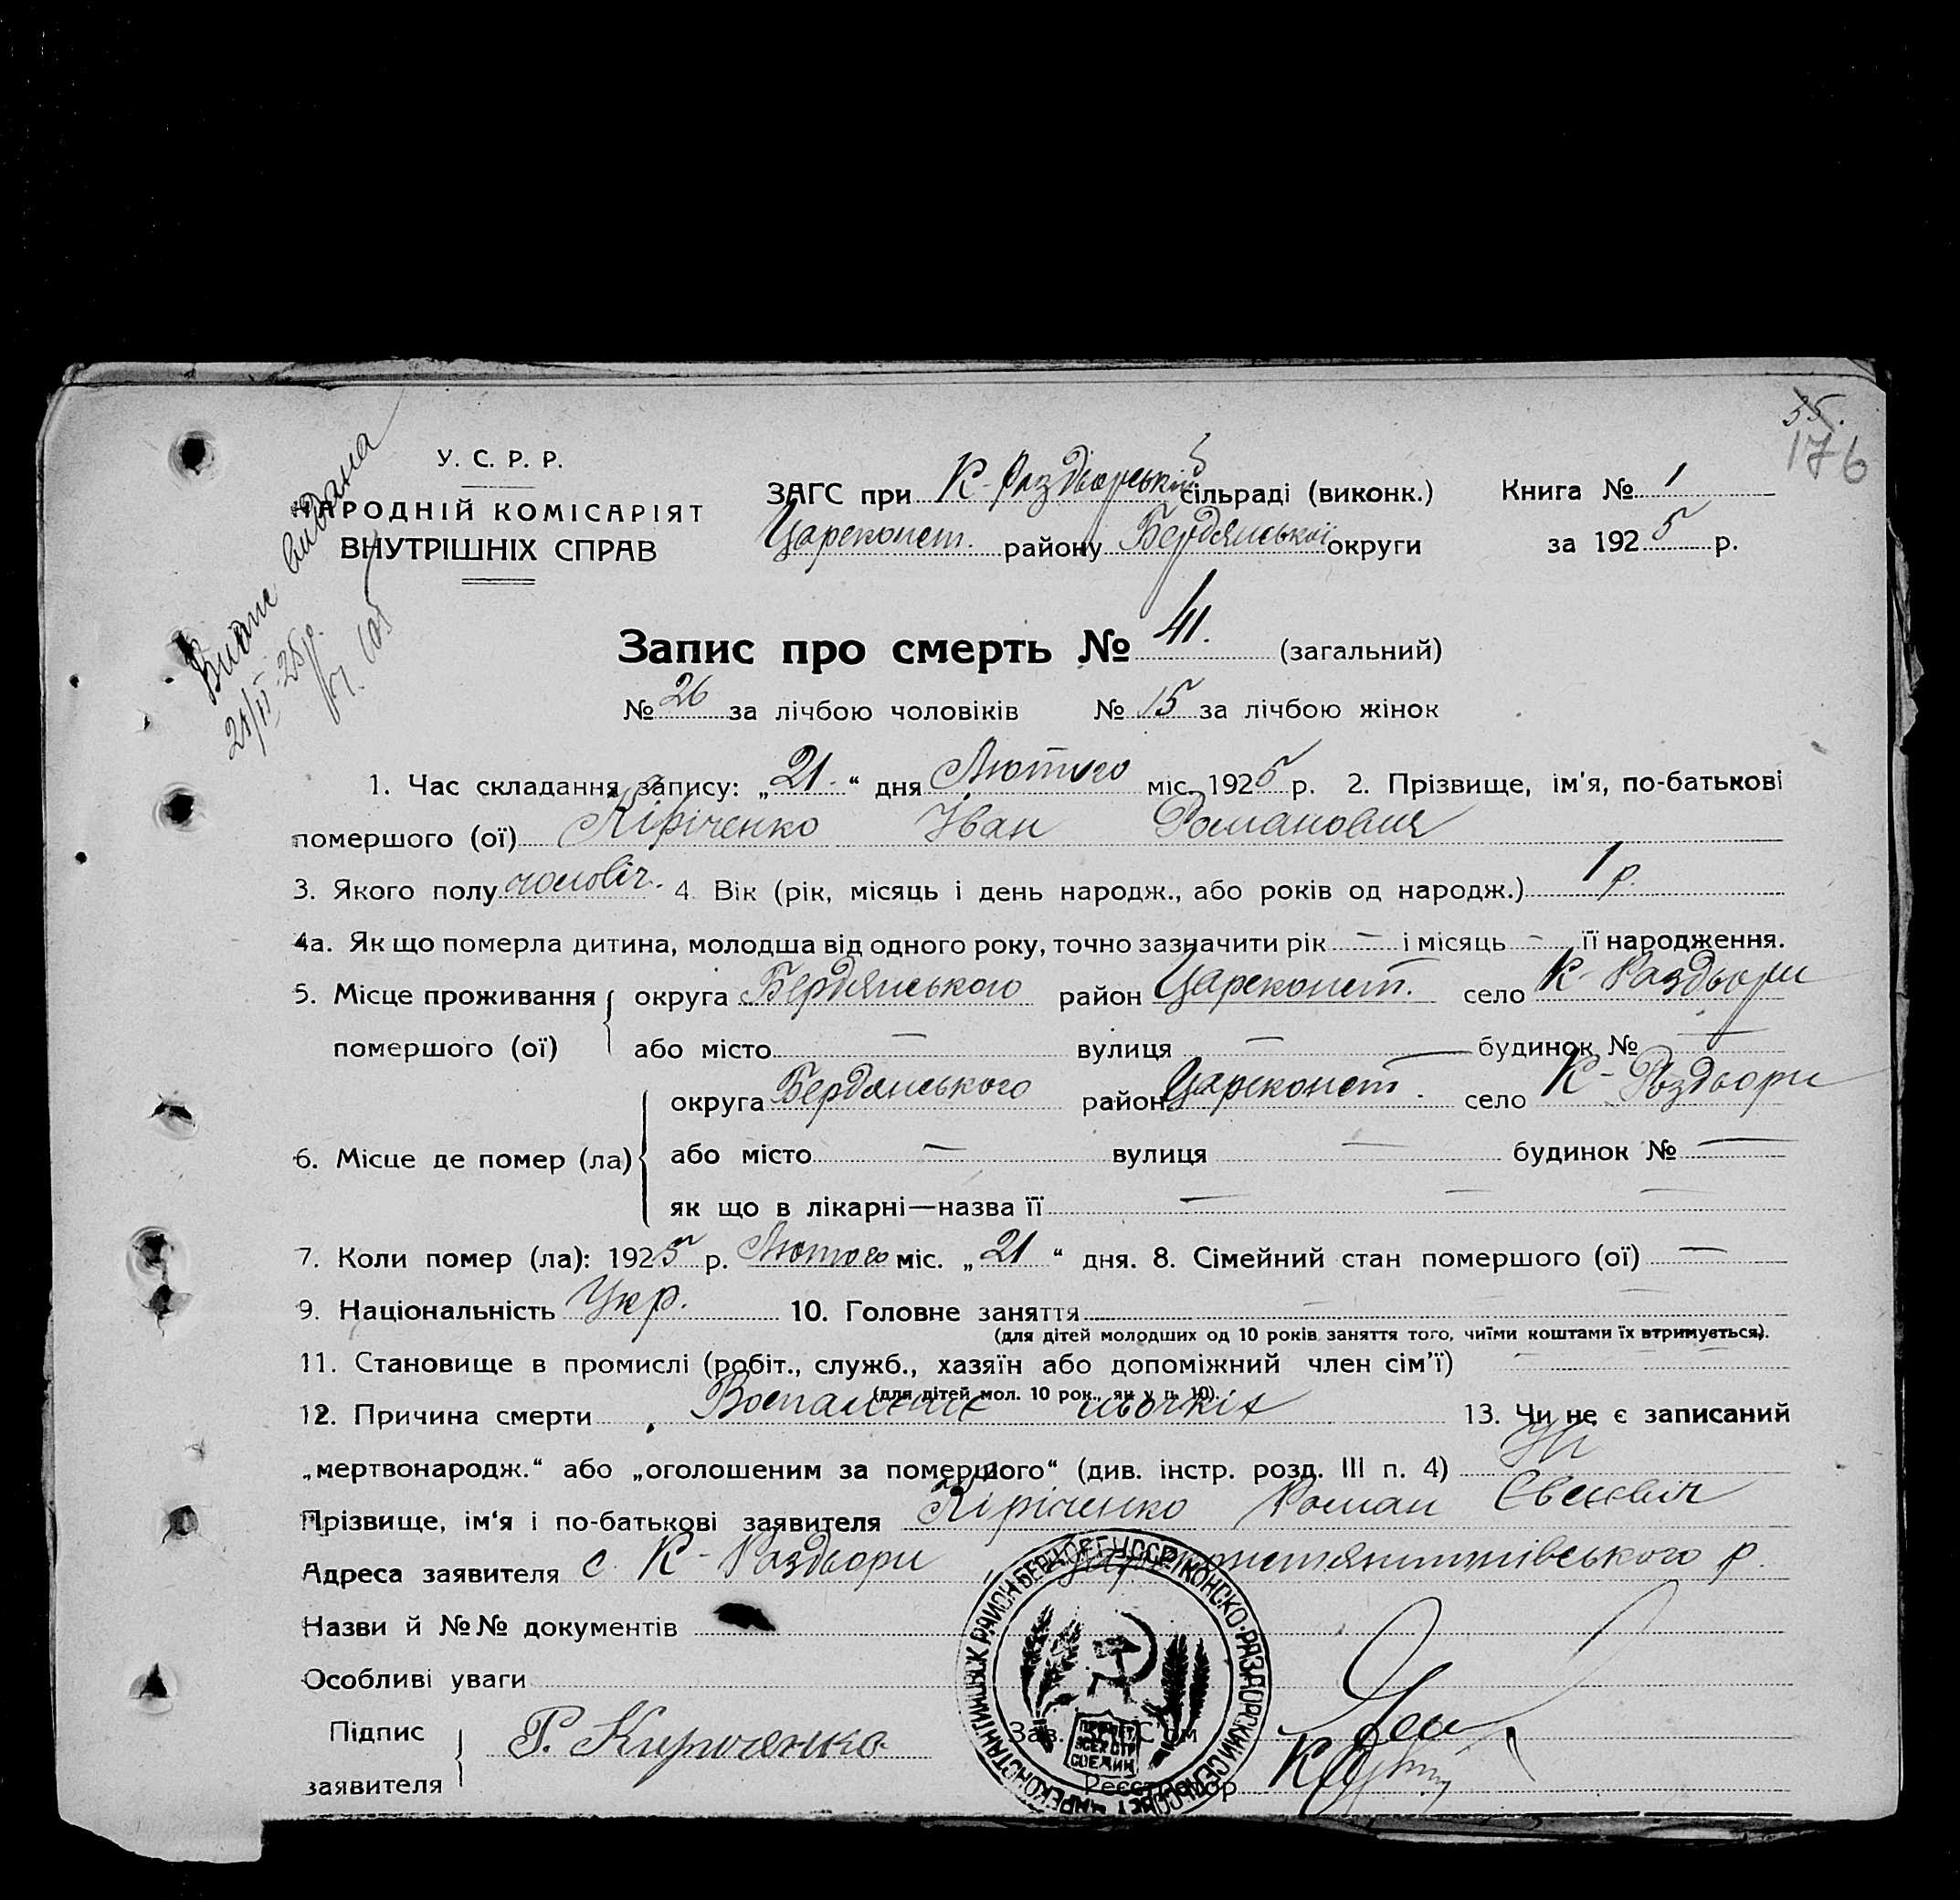 35.
176
Випис видана
21/II-25 р.
У. С. Р. Р.
НАРОДНІЙ КОМІСАРІЯТ
ВНУТРІШНІХ СПРАВ
ЗАГС при К-Раздорській сільраді (виконк.) Книга № 1
Цареконст. району Бердянської округи за 1925 р.
Запис про смерть № 41. (загальний)
№ 26 за лічбою чоловіків № 15 за лічбою жінок
1. Час складання запису: „21" дня Лютого міс. 1925 р. 2. Прізвище, ім'я, по-батькові
помершого (ої) Кіріченко Іван Романович
3. Якого полу чоловіч. 4. Вік (рік, місяць і день народж., або років од народж.) 1 р.
4а. Як що померла дитина, молодша від одного року, точно зазначити рік — і місяць — її народження.
5. Місце проживання помершого (ої) округа Бердянського район Цареконст. село К-Раздори
або місто — вулиця — будинок № —
6. Місце де помер (ла) округа Бердянського район Цареконст. село К-Роздори
або місто — вулиця — будинок № —
як що в лікарні—назва її — — —
7. Коли помер (ла): 1925 р. Лютого міс. „21" дня. 8. Сімейний стан помершого (ої) —
9. Національність Укр. 10. Головне заняття — — —
(для дітей молодших од 10 років заняття того, чиїми коштами їх втримується).
11. Становище в промислі (робіт., служб., хазяїн або допоміжний член сім'ї) — — —
(для дітей мол. 10 рок., як у п. 10).
12. Причина смерти 13. Чи не є записаний
„мертвонародж." або „оголошеним за помершого" (див. інстр. розд. III п. 4) Ні
Прізвище, ім'я і по-батькові заявителя Кіріченко Роман Євсєєвіч
Адреса заявителя с. К-Раздори, Цареконстянтинівського р.
Назви й №№ документів
Особливі уваги
Підпис заявителя Р. Кириченко
Зав. ЗАГС'ом
Реєстратор
ЦАРЕКОНСТАНТИНОВСК РАЙОН
ПРОЛЕТ
ВСЕХ СТР
СОЕДИН